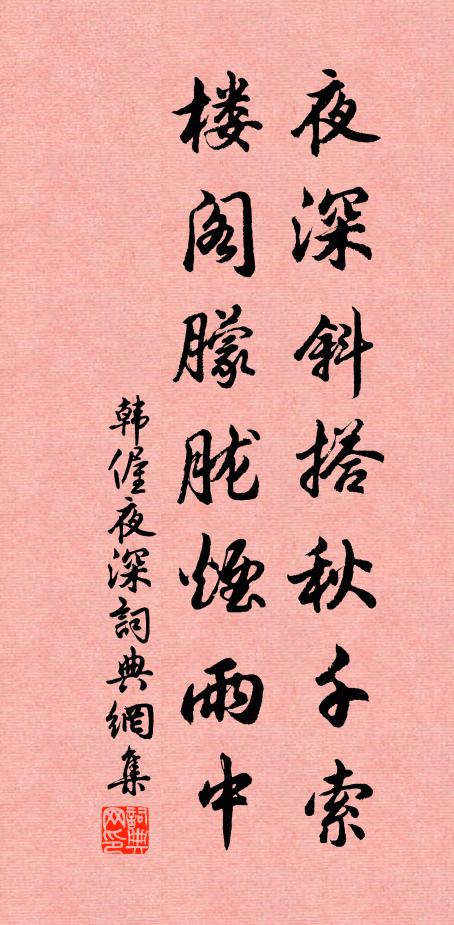 夜深斜搭秋千索
楼阁朦胧煙雨中
韩偓夜深詞典網集
詞典网印